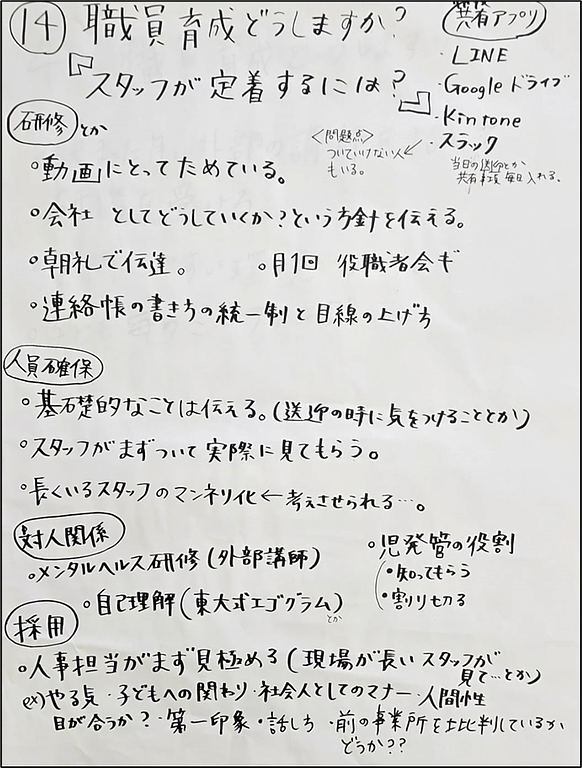 ⑭ 職員育成どうしますか?
『スタッフが定着するには?』
共有アプリ
・LINE
・Googleドライブ
・Kintone
・スラック
当日の送迎とか
共有事項 毎日入れる。
研修とか
<問題点>
ついていけない人
もいる。
○動画にとってためている。
○会社 としてどうしていくか?という方針を伝える。
○朝礼で伝達。 ○月1回 役職者会ギ
○連絡帳の書き方の統一制と目線の上げ方
人員確保
○基礎的なことは伝える。(送迎の時に気をつけることとか)
○スタッフがまずついて実際に見てもらう。
○長くいるスタッフのマンネリ化←考えさせられる…。
対人関係
○メンタルヘルス研修(外部講師)
○自己理解(東大式エゴグラム)とか
○児発管の役割
・知ってもらう
・割り切る
採用
○人事担当がまず見極める(現場が長いスタッフが
見て…とか)
ex)やる気・子どもへの関わり・社会人としてのマナー・人間性
目が合うか?・第一印象・話し方・前の事業所を批判しているか
どうか??